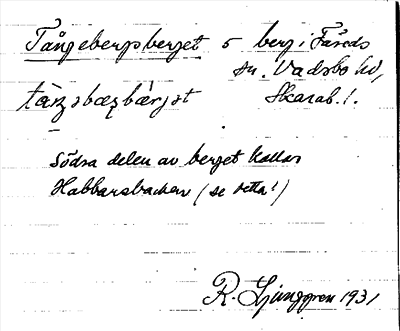 Tångebergsberget s berg i Fåreds
sn. Vadsbo hd,
Skarab. l.
Södra delen av berget kallas
Habbarsbacken (se detta!)
R. Ljunggren 1931